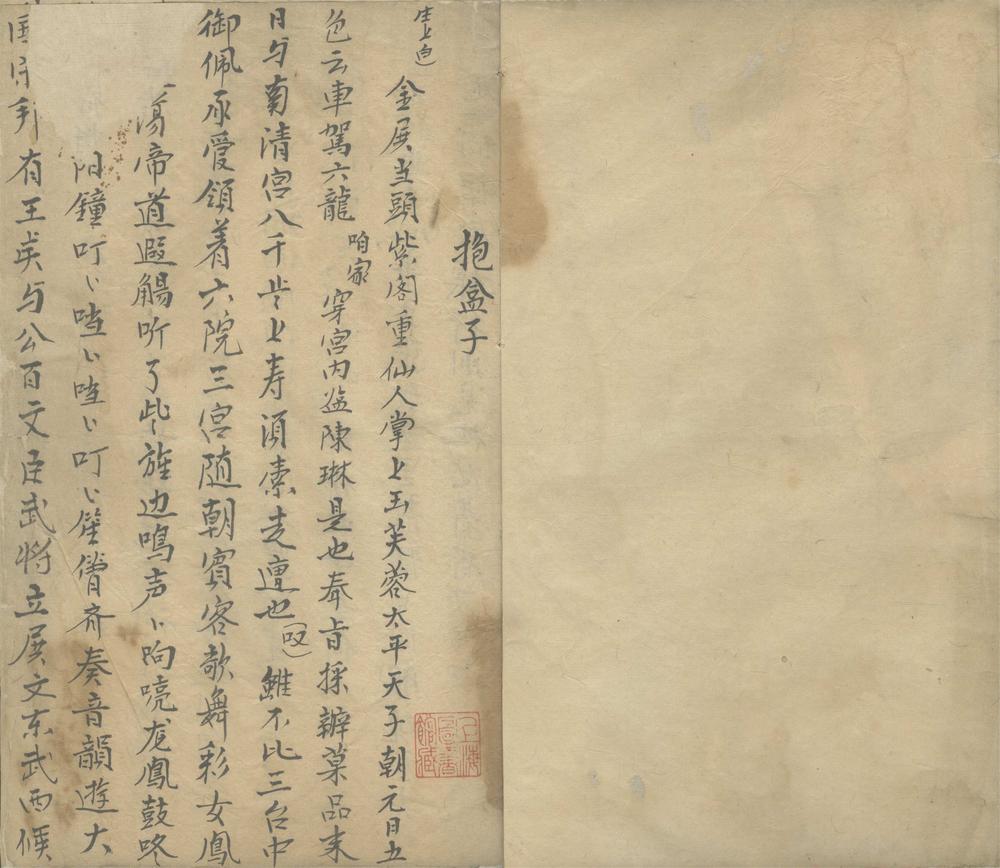 抱盒子
生上白
金展当頭紫阁重仙人掌上玉芙蓉太平天子朝元日五
色云車駕六龍 咱家 穿宫内监陳琳是也奉旨採辦菓品来
日与南清宫八千岁上寿须索走遭也 唱 虽不比三台中
御佩承受領着六院三宫随朝賓客歌舞彩女鳳
荡帝道遐觴听了些旌边鳴声丶响喨龙鳳鼓咚
阳鐘叮丶噹丶噹丶叮丶笙簧齐奏音韻遊大
有王侯与公百文臣武将立展文东武西候
上海圖書館藏